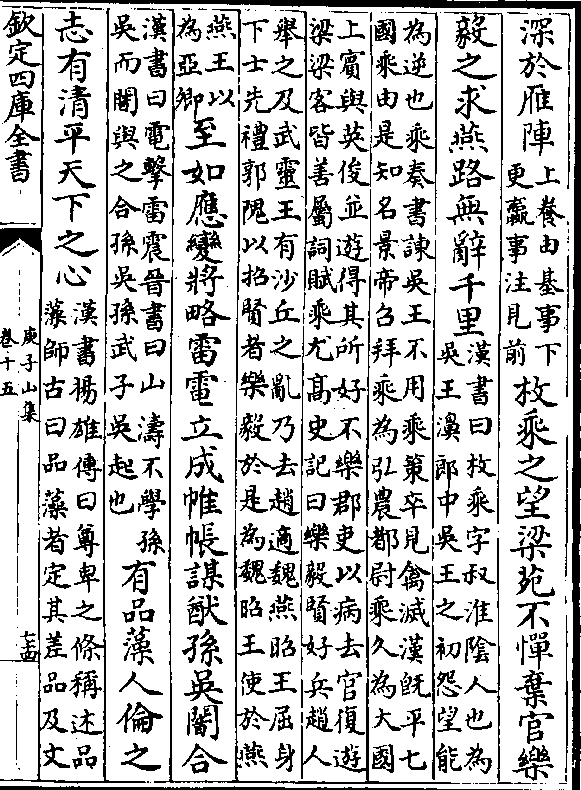 深於雁陣
上養由基事下
更羸事注見前
枚乘之望梁苑不憚棄官樂
毅之求燕路無辭千里
漢書曰枚乘字叔淮陰人也為
吳王濞郎中吳王之初怨望能
為逆也乘奏書諫吳王不用乘策卒見禽滅漢既平七
國乘由是知名景帝召拜乘為弘農都尉乘久為大國
上賓與英俊並遊得其所好不樂郡吏以病去官復遊
梁梁客皆善屬詞賦乘尤髙史記曰樂毅賢好兵趙人
舉之及武靈王有沙丘之亂乃去趙適魏燕昭王屈身
下士先禮郭隗以招賢者樂毅於是為魏昭王使於燕
燕王以
為亞卿
至如應變將略雷電立成帷帳謀猷孫吳闇合
漢書曰電擊雷震晉書曰山濤不學孫
吳而闇與之合孫吳孫武子吳起也
有品藻人倫之
志有清平天下之心
漢書揚雄傳曰尊卑之條稱述品
藻師古曰品藻者定其差品及文
欽定四庫全書
庾子山集
卷十五